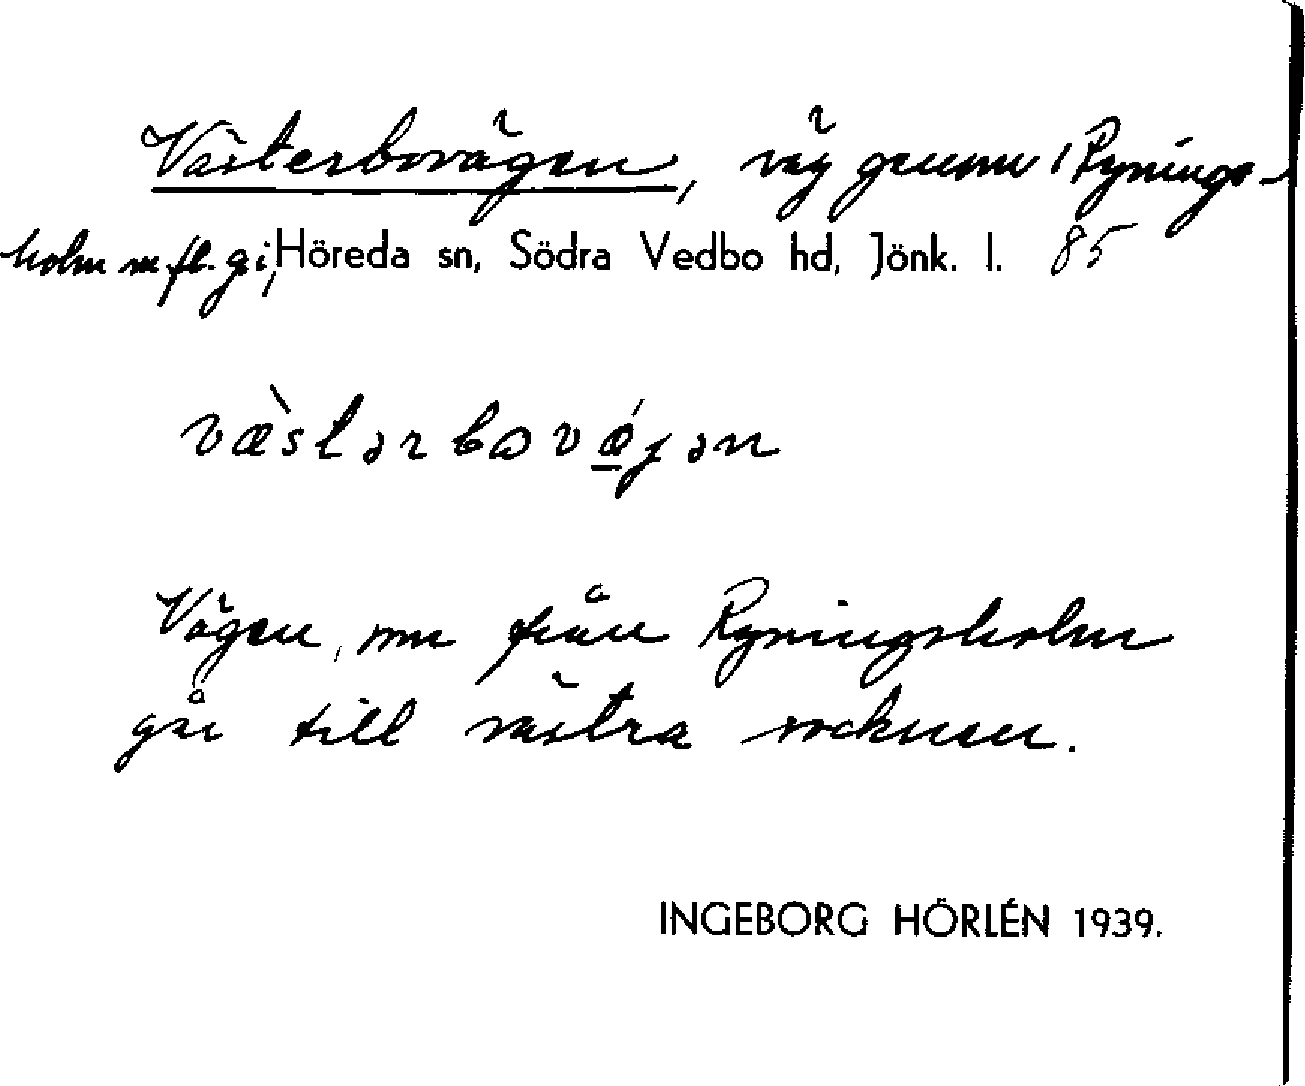 Västerbovägen, väg genom Rynings-
holm m.fl. gi, Höreda sn, Södra Vedbo hd, Jönk. l. 85
væ̀stərbovǽ̱jən
Vägen, som från Ryningsholm
går till västra socknen.
INGEBORG HÖRLÉN 1939.